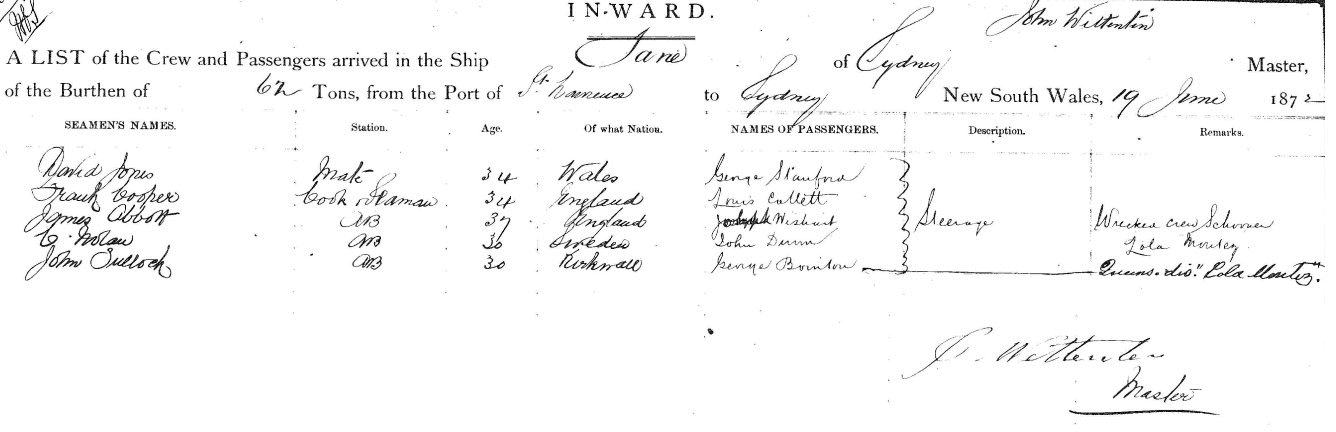 IN-WARD.
John Wittentin
A LIST of the Crew and Passengers arrived in the Ship Jane of Sydney Master,
of the Burthen of 62 Tons, from the Port of St. Lawrence to Sydney New South Wales, 19 June 1872
SEAMEN'S NAMES. Station. Age. Of what Nation. NAMES OF PASSENGERS. Description. Remarks.
David Jones Mate 34 Wales George Stanford
Frank Cooper Cook & Seaman 34 England Louis Collett
James Abbott AB 37 England Wishart Steerage Wrecked crew Schooner
C. Nolan AB 30 Sweden John Dunn Lola Montez
John Tulloch AB 30 Kirkwall George Bointon "Lola Montez"
J. Wittenten
Master